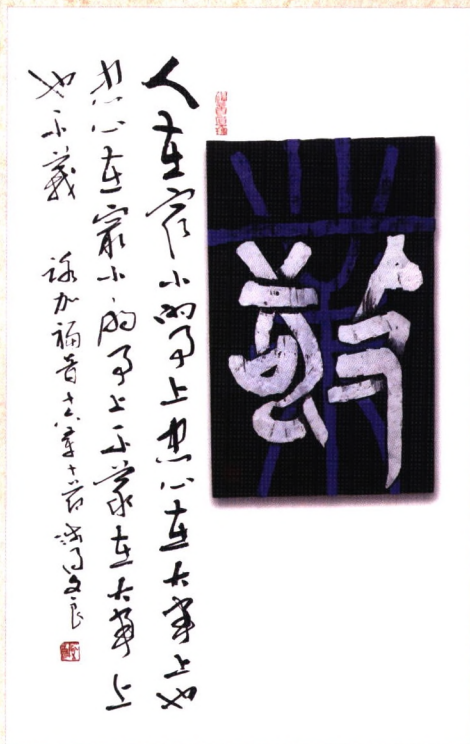 人在最小的事上忠心在大事上也
忠心在最小的事上不義在大事上
也不義 路加福音十六章十節